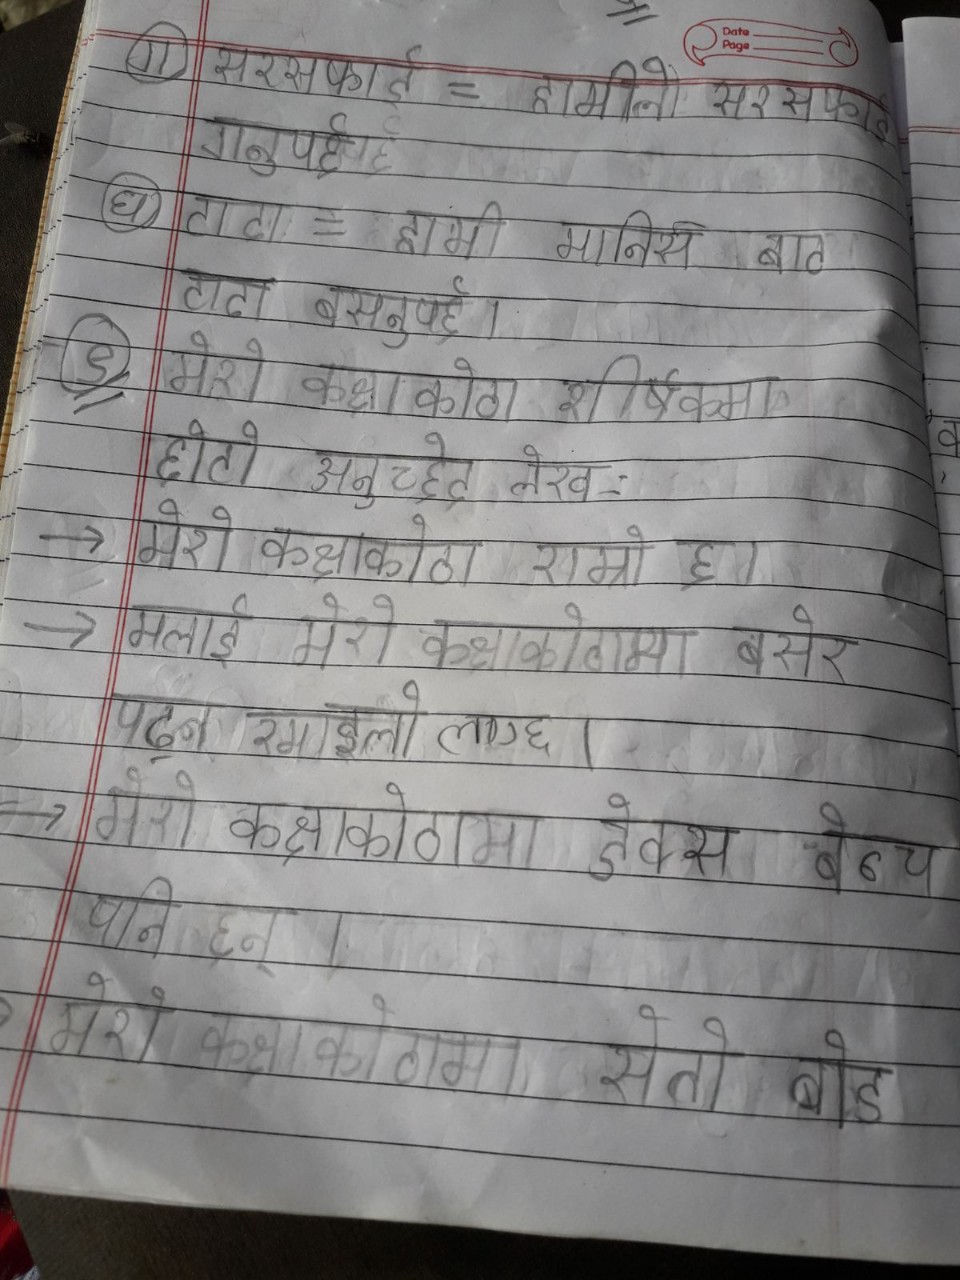 Date
Page
ग) सरसफाई = हामीले सरसफाई
गनुपर्छ
घ) टाढा = हामी मानिस बाट
टाढा बसनुपर्छ।
ङ) मेरो कक्षाकोठा शीर्षकमा
छोटो अनुच्छेद लेख :-
→ मेरो कक्षाकोठा राम्रो छ।
→ मलाई मेरो कक्षाकोठामा बसेर
पढ्न रमाइलो लाग्छ।
→ मेरो कक्षाकोठामा डेक्स बेन्च
पनि छन्।
मेरो कक्षाकोठामा सेतो बोड